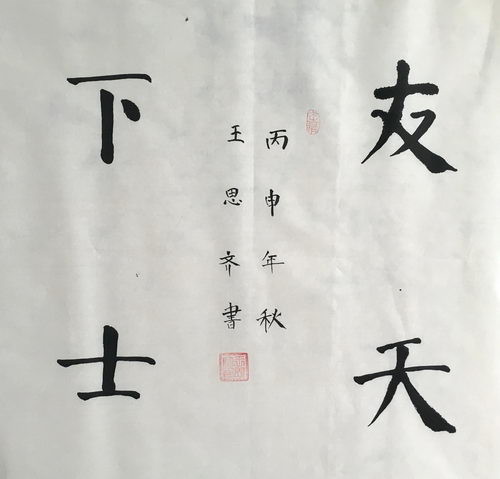 友天
丙申年秋
王思齐書
下士